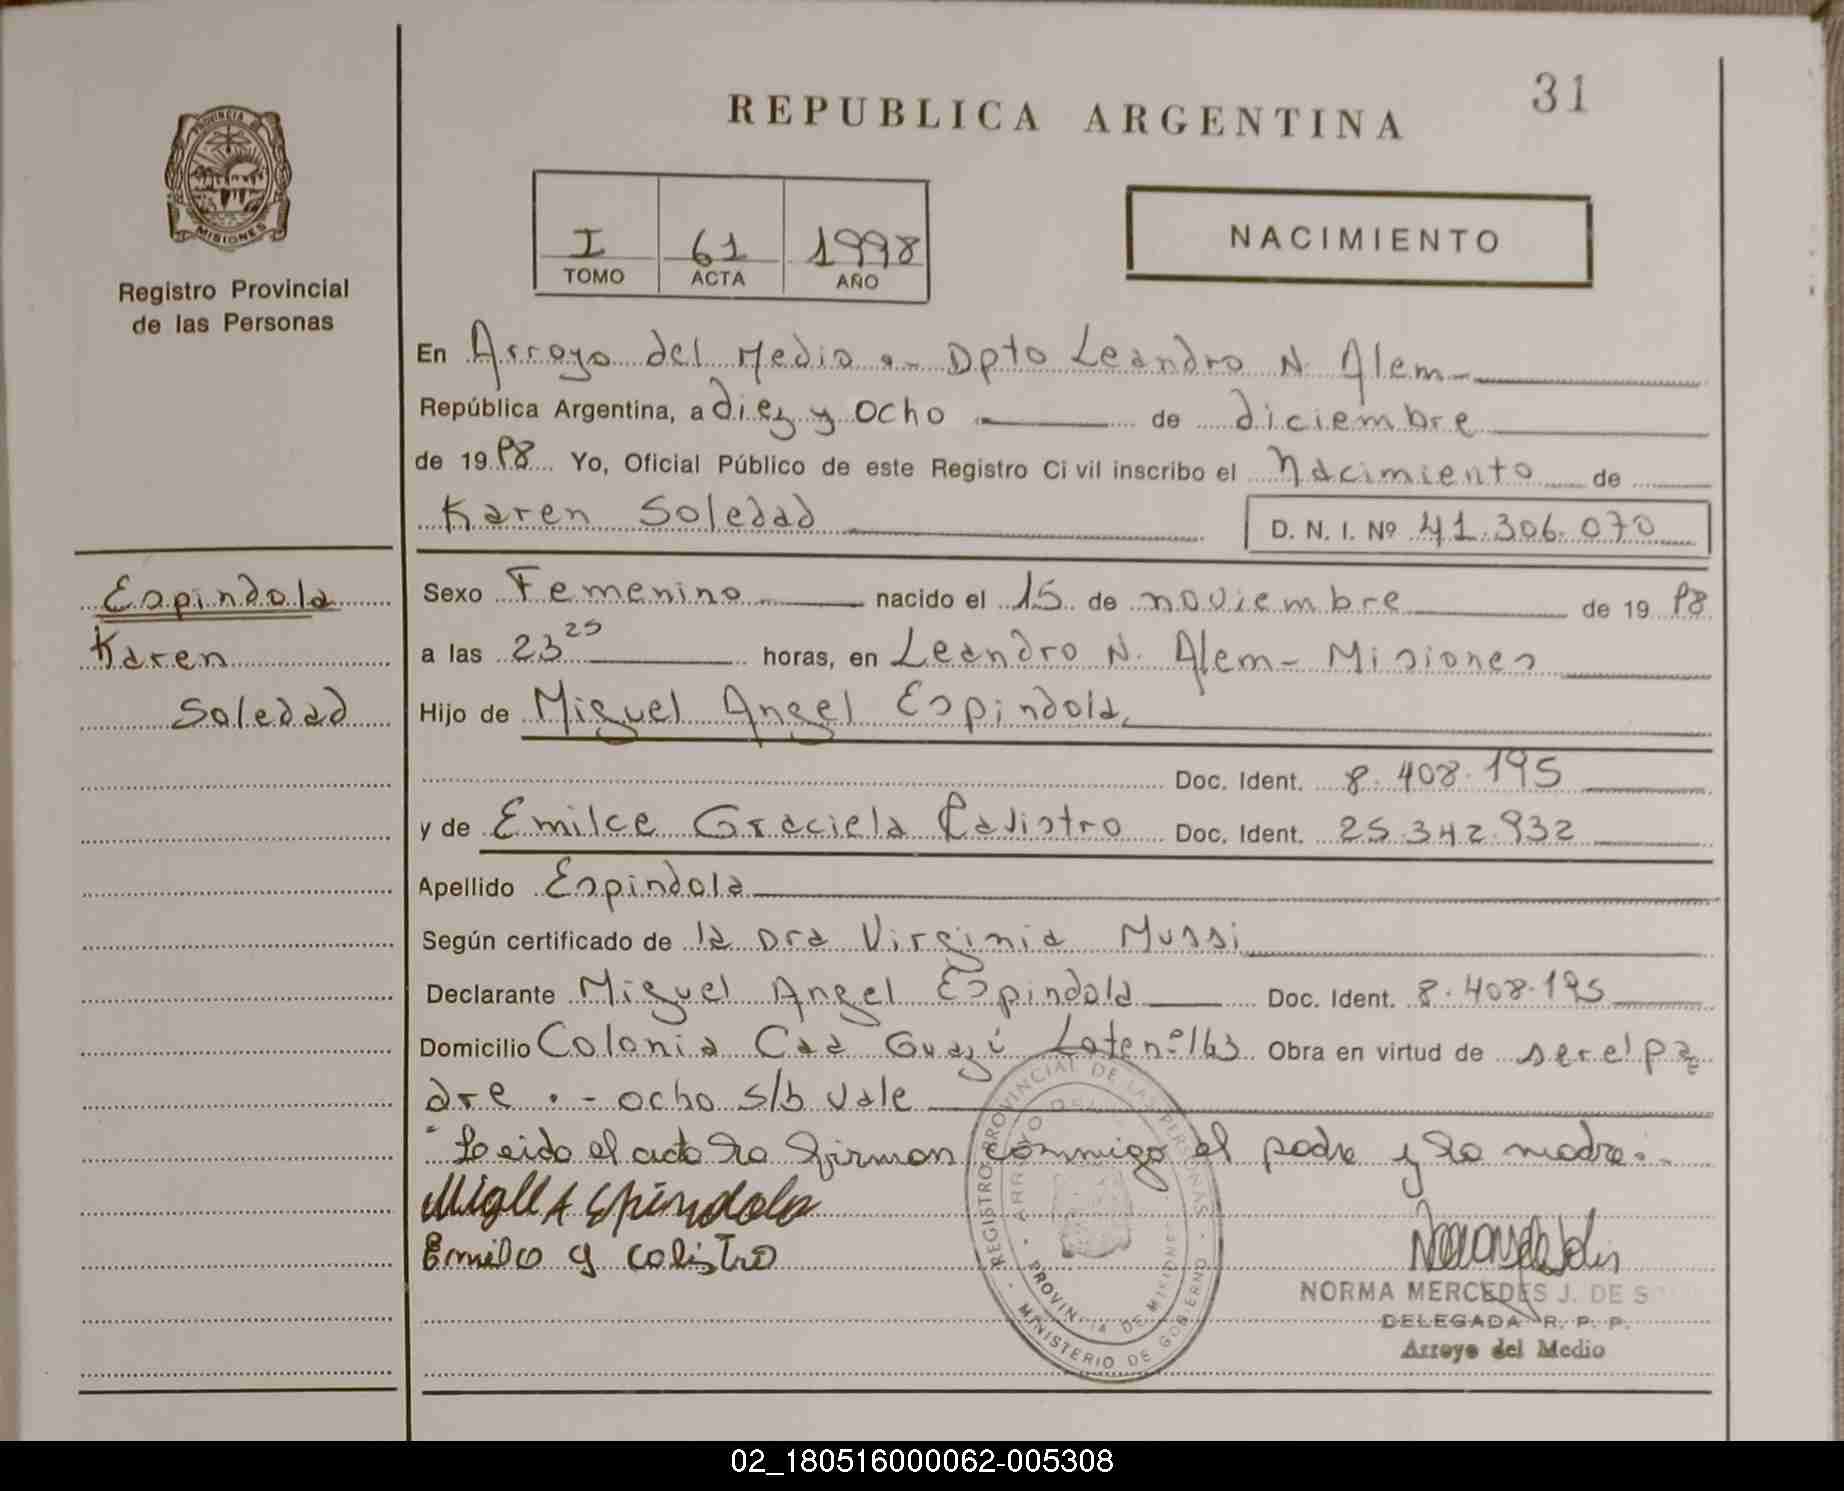 31
REPUBLICA ARGENTINA
PROVINCIA DE
MISIONES
Registro Provincial
de las Personas
I 61 1998
TOMO ACTA AÑO
NACIMIENTO
En Arroyo del Medio .- Dpto Leandro N. Alem-
República Argentina, a diez y ocho de diciembre
de 1998 Yo, Oficial Público de este Registro Civil inscribo el Nacimiento de
Karen Soledad D. N. I. Nº 41.306.070
Espindola
Karen
Soledad
Sexo Femenino nacido el 15 de noviembre de 1998
a las 23 25 horas, en Leandro N. Alem- Misiones
Hijo de Miguel Angel Espindola
Doc. Ident. 8.408.195
y de Emilce Graciela Calistro Doc. Ident. 25.342.932
Apellido Espindola
Según certificado de la Dra Virginia Mussi
Declarante Miguel Angel Espindola Doc. Ident. 8.408.195
Domicilio Colonia Caa Guazú Lote nº 163 Obra en virtud de ser el pa
dre .- ocho s/b vale
Leido el acta la firman conmigo el padre y la madre.
Miguel A Espindola
Emilce G Calistro
REGISTRO PROVINCIAL DE LAS PERSONAS
ARROYO DEL
PROVINCIA DE MISIONES
MINISTERIO DE GOBIERNO
NORMA MERCEDES J. DE
DELEGADA R. P. P.
Arroyo del Medio
02_180516000062-005308